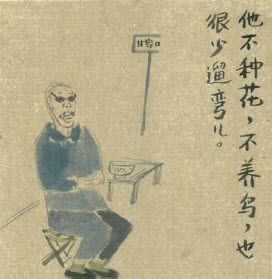 他不种花，不养鸟，也
很少遛弯儿。
甘家口